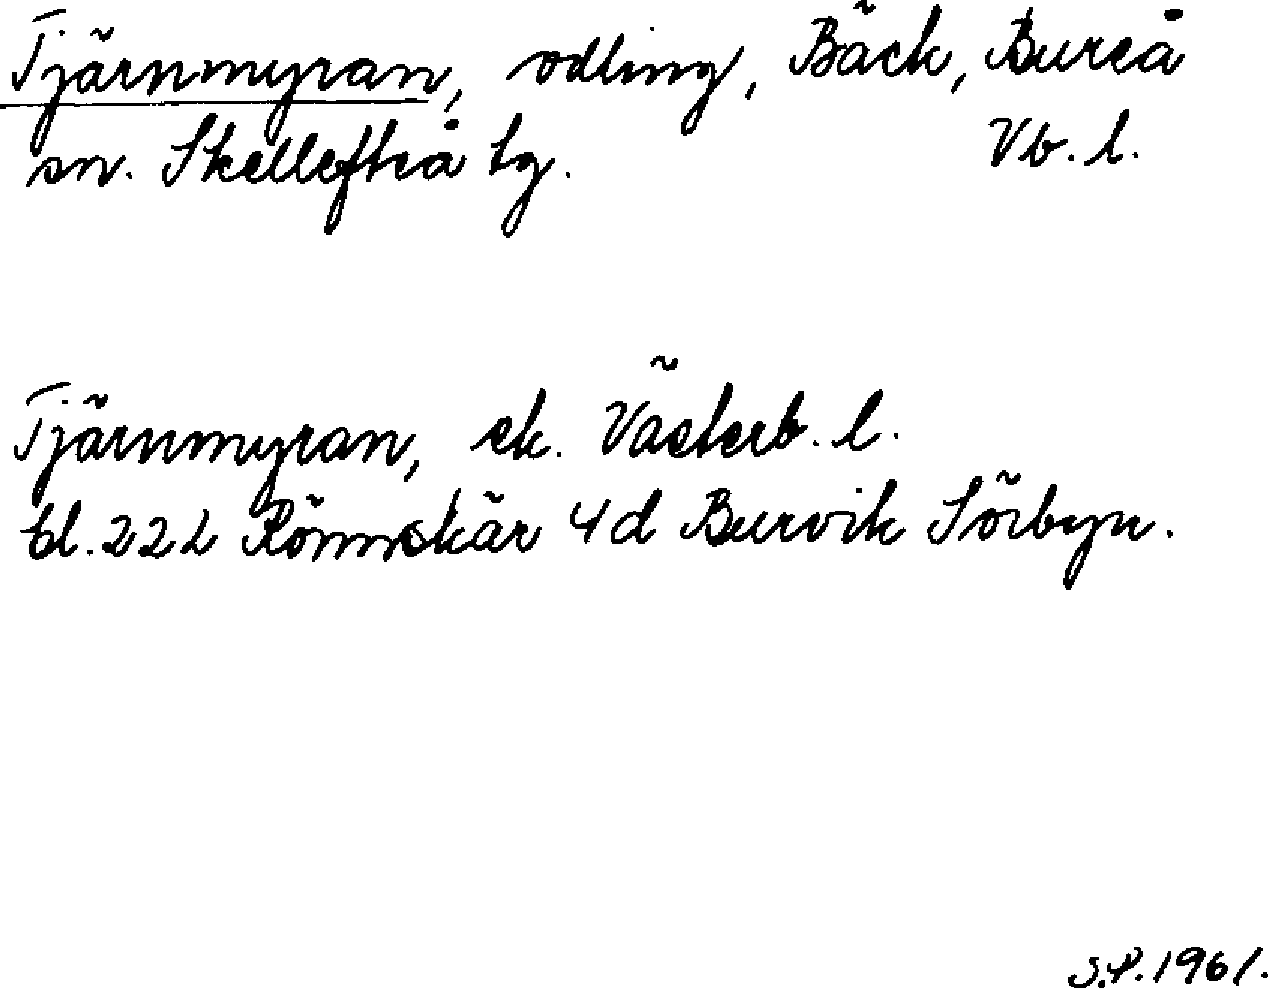 Tjärnmyran, odling, Bäck, Bureå
sn. Skellefteå tg. Vb. l.
Tjärnmyran, ek. Västerb. l.
bl. 22L Rönnskär 4d Burvik Sörbyn.
S.P. 1961.